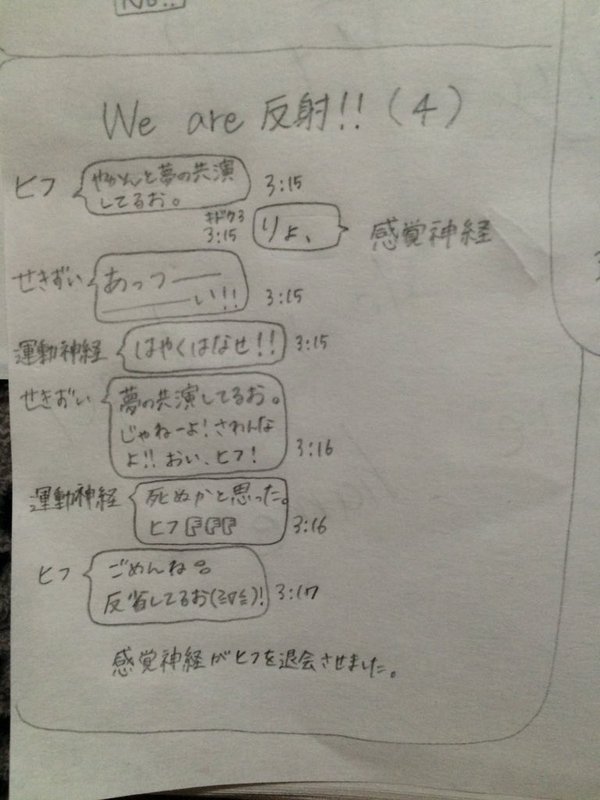 No!!
We are 反射!!(4)
ヒフ
やかんと夢の共演
してるお。
3:15
キドク3
3:15
りょ、
感覚神経
せきずい
あっつ――
――い!!
3:15
運動神経
はやくはなせ!!
3:15
せきずい
夢の共演してるお。
じゃねーよ!さわんな
よ!!おい、ヒフ!
3:16
運動神経
死ぬかと思った。
ヒフ
3:16
ヒフ
ごめんね
反省してるお(≧∇≦)!
3:17
感覚神経がヒフを退会させました。